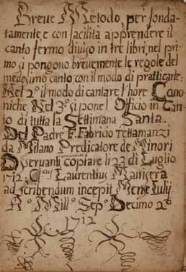 Breve Metodo, per fonda-
tamente e con facilità apprendere il
canto fermo diviso in tre libri, nel pri-
mo si pongono brevemente le regole del
medesimo canto con il modo di pratticarle
Nel 2º il modo di cantare l'hore Cano-
niche Nel 3º si pone l'Officio in Can-
to di tutta la Settimana Santa.
Del Padre Fabricio Tettamanzi
da Milano Predicatore de Minori
Osservanti copiate li 22 di Luglio
1712 Laurentius Maniera
ad scribendum incepit Mense Iulij
Aº Millº Sepº Decimo 2º
1712